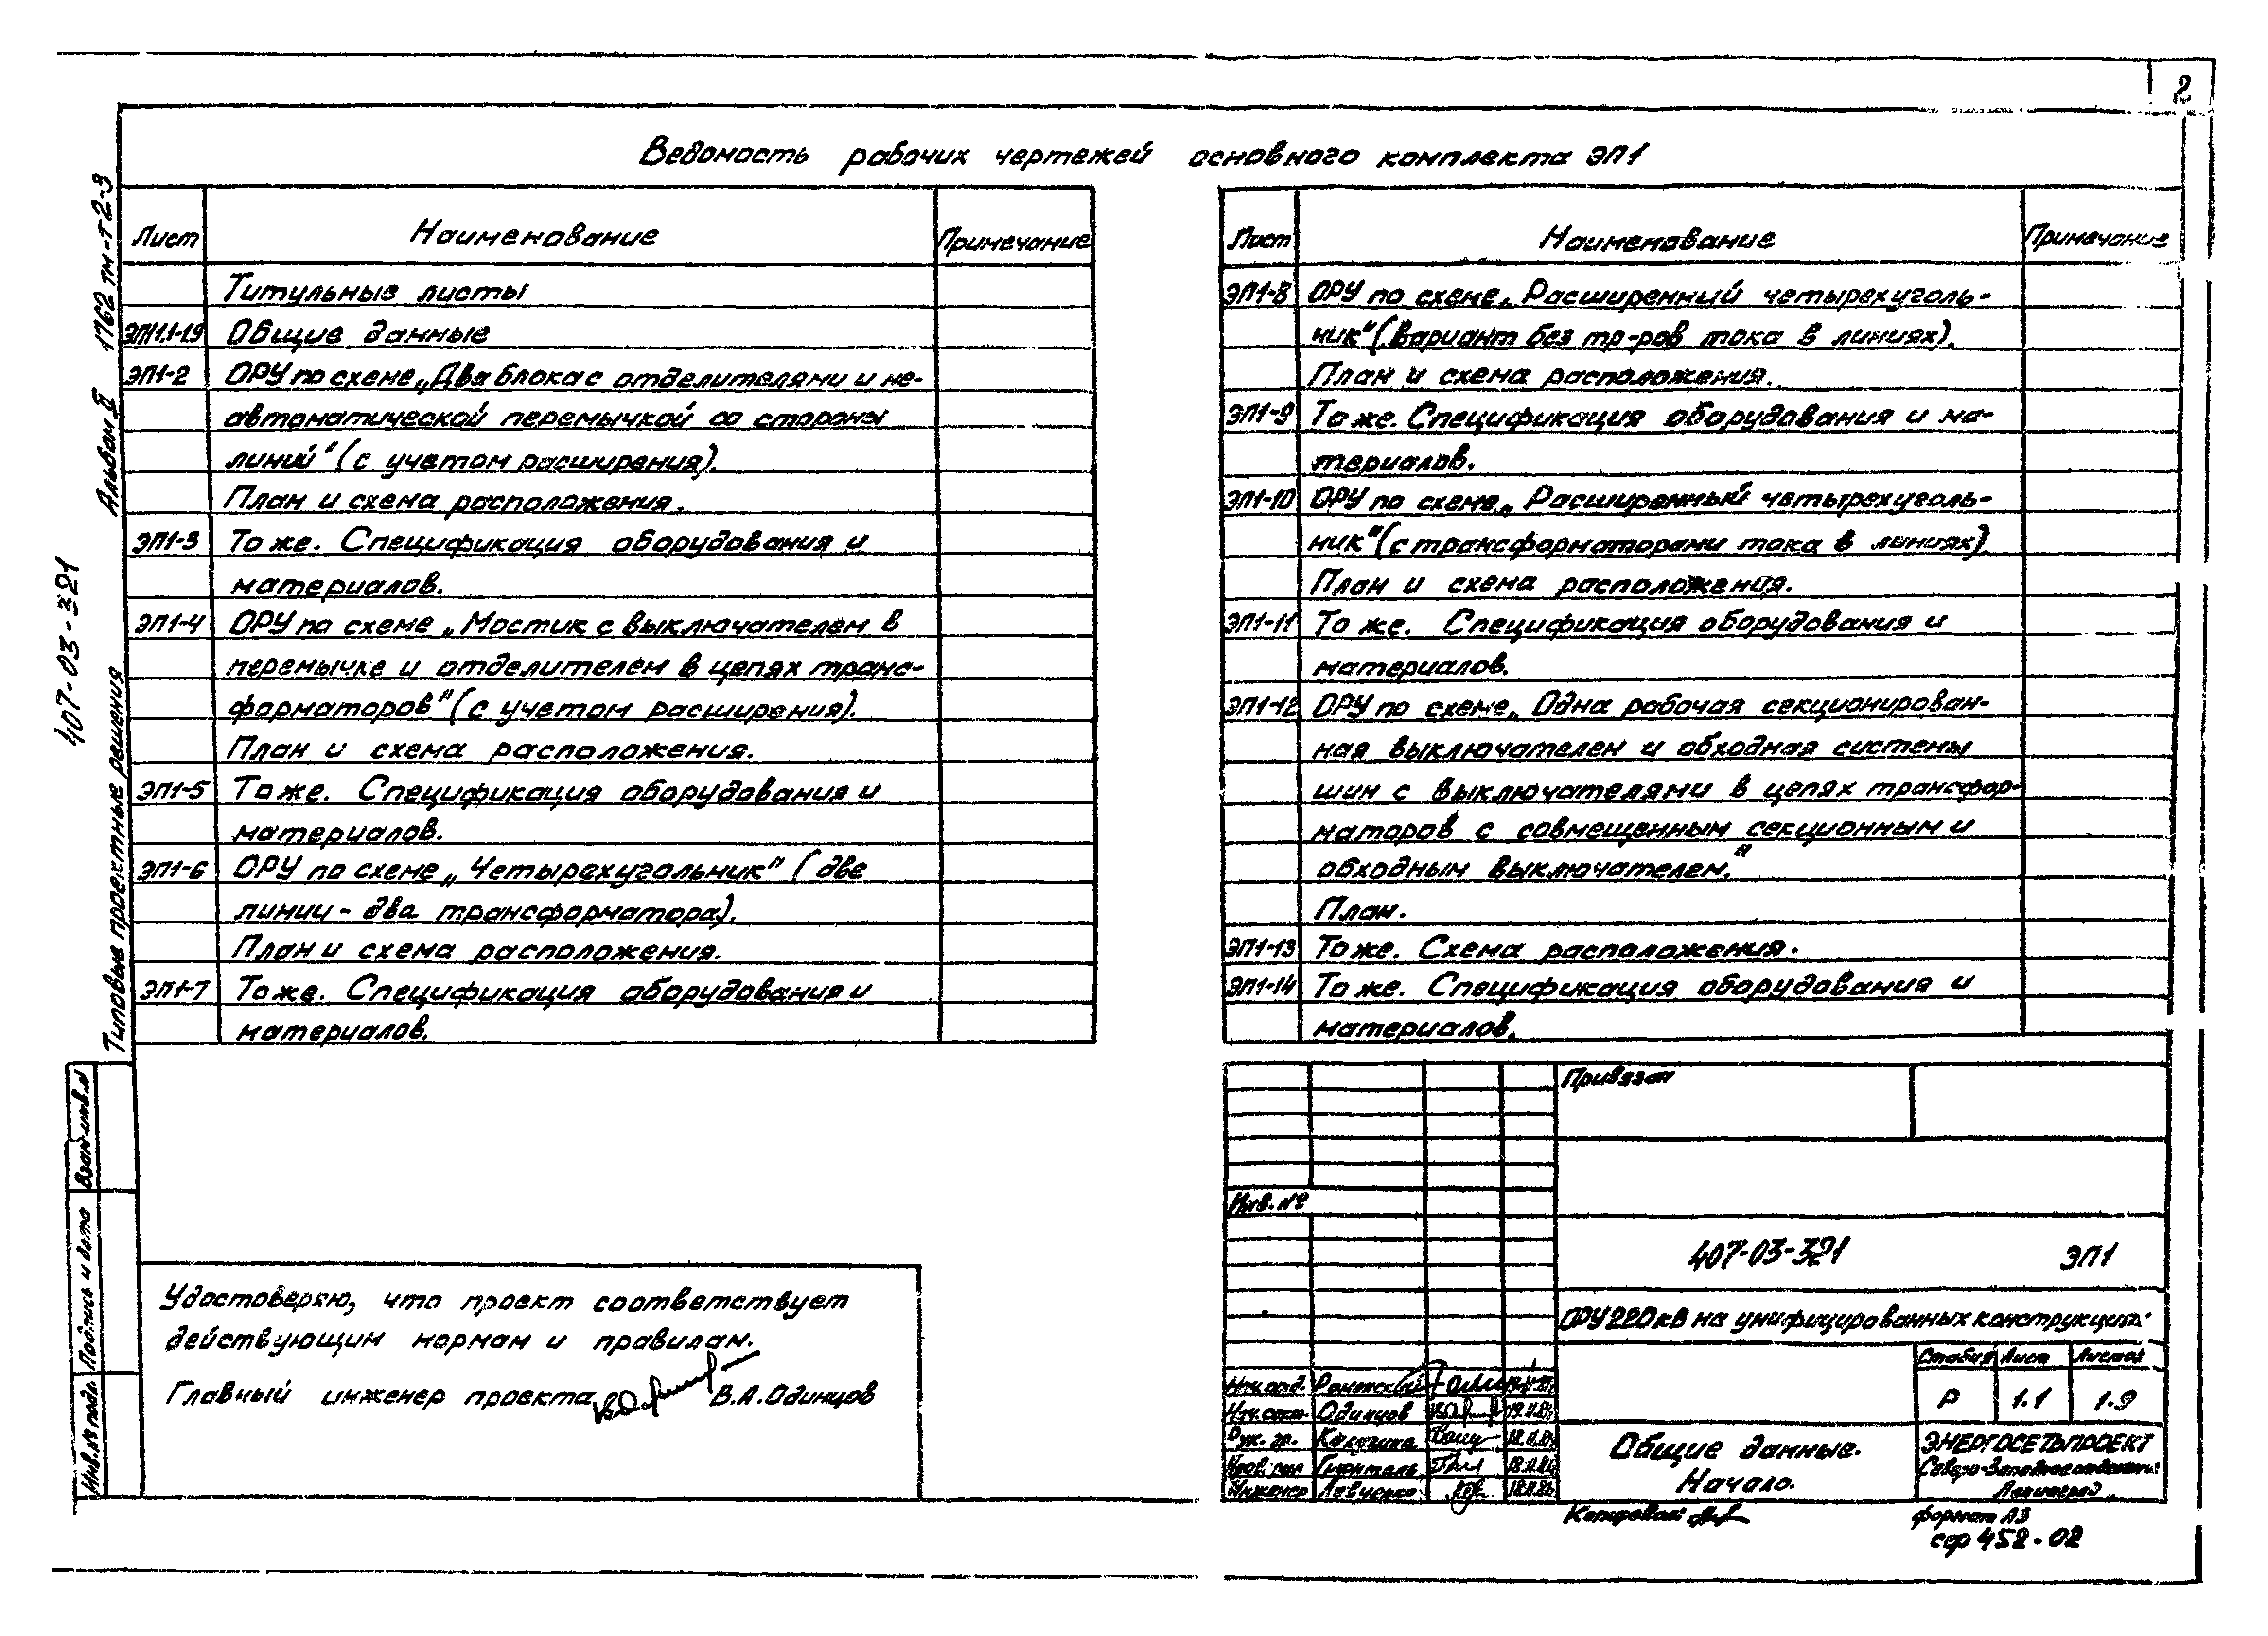 2
Ведомость рабочих чертежей основного комплекта ЭП1
Лист Наименование Примечание
Титульные листы
ЭП1.1-1.9 Общие данные
ЭП1-2 ОРУ по схеме „Два блока с отделителями и не-
автоматической перемычкой со стороны
линий" (с учетом расширения).
План и схема расположения.
ЭП1-3 То же. Спецификация оборудования и
материалов.
ЭП1-4 ОРУ по схеме „Мостик с выключателем в
перемычке и отделителем в цепях транс-
форматоров" (с учетом расширения).
План и схема расположения.
ЭП1-5 То же. Спецификация оборудования и
материалов.
ЭП1-6 ОРУ по схеме „Четырехугольник" (две
линии - два трансформатора).
План и схема расположения.
ЭП1-7 То же. Спецификация оборудования и
материалов.
Лист Наименование Примечание
ЭП1-8 ОРУ по схеме „Расширенный четырехуголь-
ник" (вариант без тр-ров тока в линиях).
План и схема расположения.
ЭП1-9 То же. Спецификация оборудования и ма-
териалов.
ЭП1-10 ОРУ по схеме „Расширенный четырехуголь-
ник" (с трансформаторами тока в линиях)
План и схема расположения.
ЭП1-11 То же. Спецификация оборудования и
материалов.
ЭП1-12 ОРУ по схеме „Одна рабочая секционирован-
ная выключателем и обходная системы
шин с выключателями в цепях трансфор-
маторов с совмещенным секционным и
обходным выключателем."
План.
ЭП1-13 То же. Схема расположения.
ЭП1-14 То же. Спецификация оборудования и
материалов.
1762 тм-т2-3
Альбом II
407-03-321
Типовые проектные решения
Взам.инв.№
Подпись и дата
Инв.№ подл.
Удостоверяю, что проект соответствует
действующим нормам и правилам.
Главный инженер проекта В.А.Одинцов
Привязан
Инв. №
407-03-321 ЭП1
ОРУ 220кВ на унифицированных конструкциях
Стадия Лист Листов
Р 1.1 1.9
Нач.отд.
Одинцов
Рук. гр.
Инженер Левченко
Общие данные.
Начало.
ЭНЕРГОСЕТЬПРОЕКТ
Северо-Западное отделение
Ленинград
Копировал
формат А3
сф 452-02